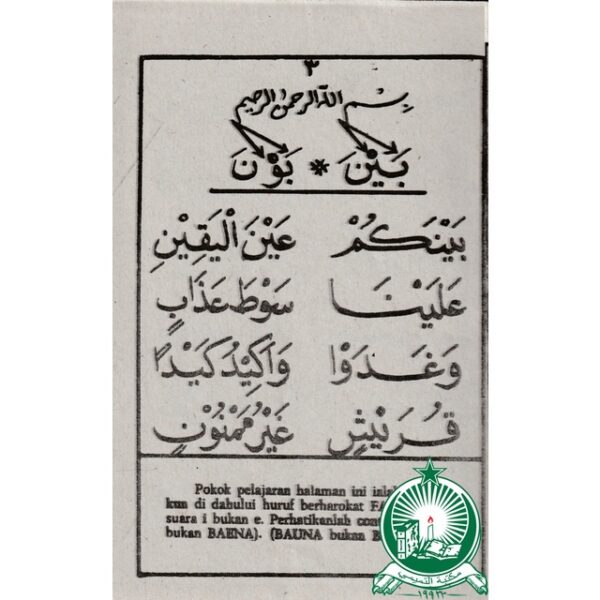 ٣
بِسْمِ اللهِ الرَّحْمٰنِ الرَّحِيمِ
بَيْنَ * بَوْنَ
بَيْنَكُمْ عَيْنَ الْيَقِيْنِ
عَلَيْنَا سَوْطَ عَذَابٍ
وَغَدَوْا وَاَكِيْدُ كَيْدًا
قُرَيْشٍ غَيْرُ مَمْنُوْنٍ
Pokok pelajaran halaman ini ialah
kun di dahului huruf berharokat
suara i bukan e. Perhatikanlah
bukan BAENA). (BAUNA bukan
مكتبة القدسي
١٩٩٢